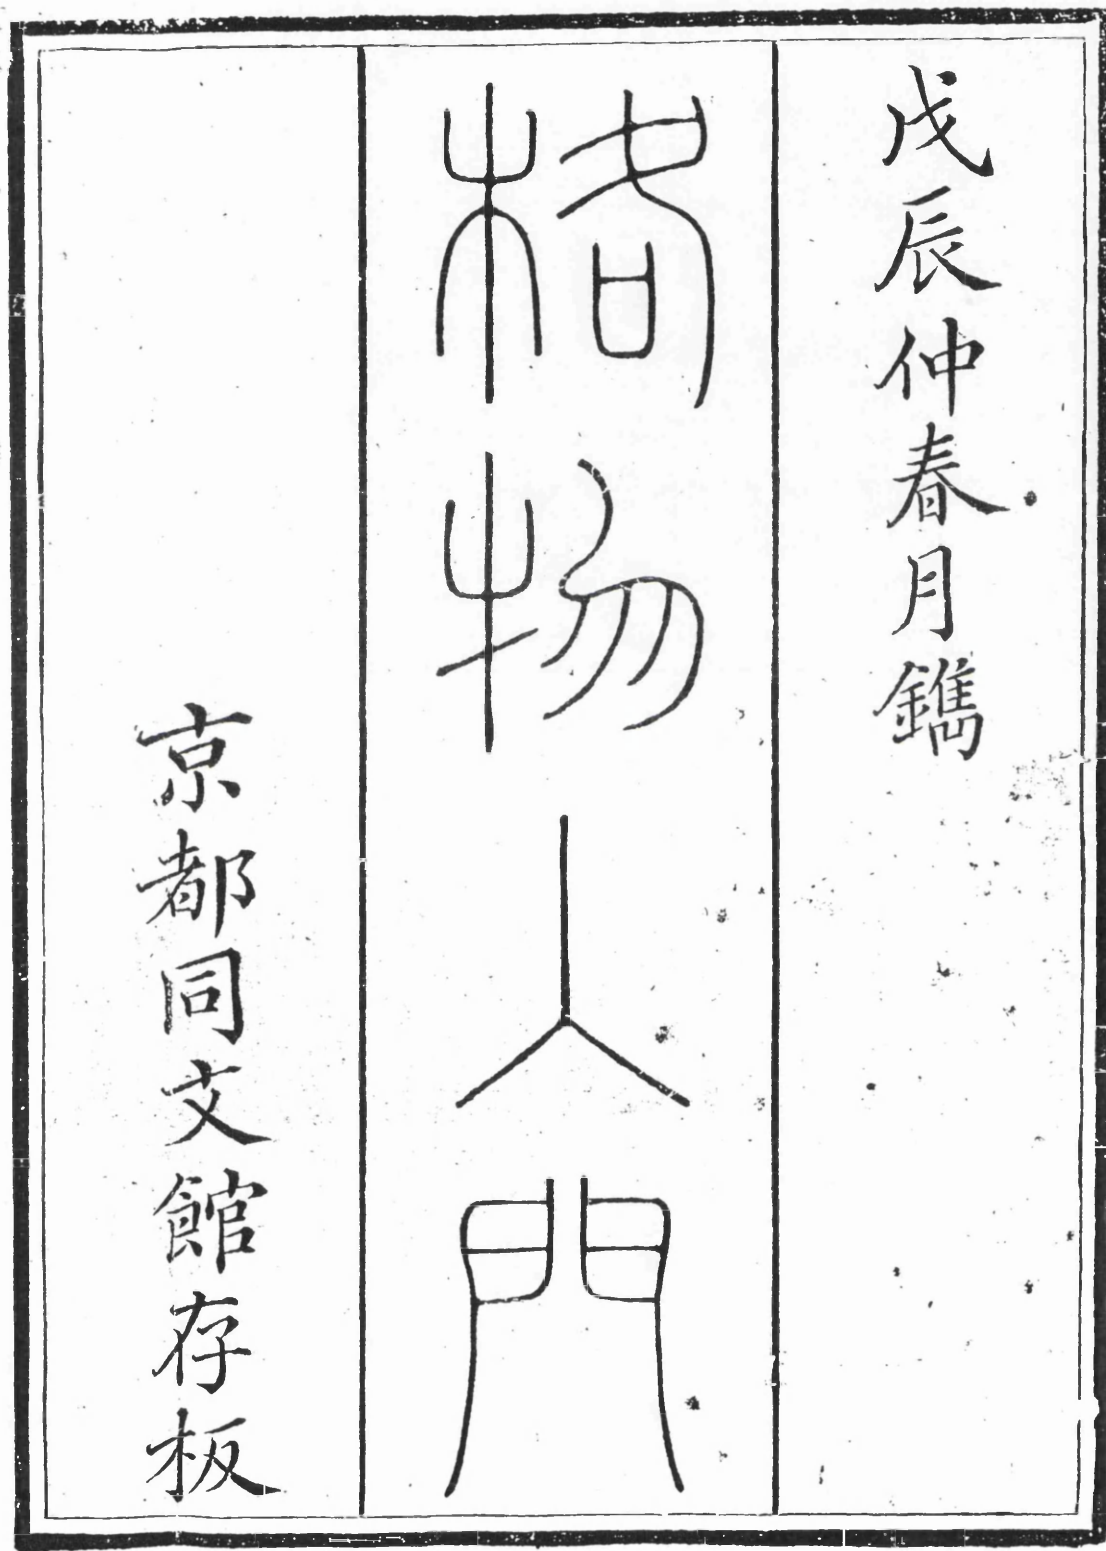 戊辰仲春月鐫
格物入門
京都同文館存板